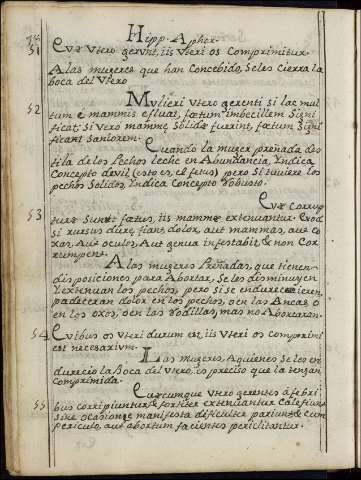 Hipp. Aphor.
51 Quæ Utero gerunt, iis Uteri os Comprimitur.
A las mugeres que han Concebido, Se les Cierra la
boca del Utero
52 Mulieri Utero gerenti si lac mul
tum e mammis efluat, fætum imbecillem Signi
ficat; Si vero mammæ Solidæ fuerint, fætum Signi
ficant Saniorem.
Quando la muger preñada des
tila de los Pechos leche en Abundancia, Yndica
Concepto devil (esto es, el fetus) pero Si tuviere los
pechos Solidos, Yndica Concepto Robusto.
53 Quæ Corrup
turæ Sunt fætus, iis mammæ extenuantur. Quod
si rursus duræ fiant, dolor, aut mammas, aut co
xas, Aut oculos, Aut genua infestabit & non Cor
rumpent.
A las mugeres Preñadas, que tienen
disposiciones para Abortar, Se les disminuyen
Y extenuan los pechos, pero si se endurecieren,
padeceran dolor en los pechos, o en las Ancas, o
en los oxos, o en las Rodillas, mas no Abortaran.
54 Quibus os Uteri durum est, iis Uteri os Comprimi
est necesarium.
Las mugeres, Aquienes Se les en
durecio la Boca del Utero, es preciso que la tengan
Comprimida.
55 Quæcumque Utero gerentes á febri
bus corripiuntur & fortiter extenuantur Calefiunt
sine ocasione manifesta dificulter pariunt & cum
periculo, aut abortum facientes periclitantur.